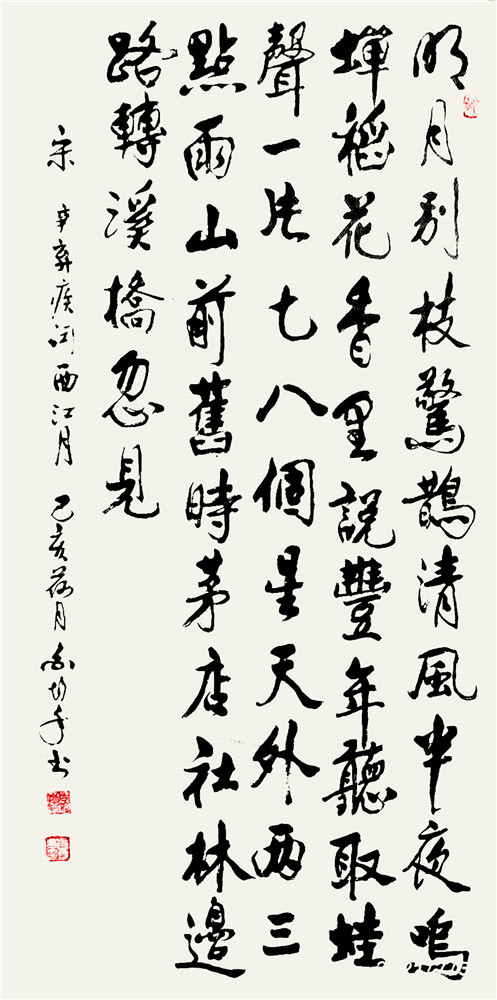 明月别枝驚鵲清風半夜鳴
蟬稻花香里說豐年聽取蛙
聲一片七八個星天外兩三
點雨山前舊時茅店社林邊
路轉溪橋忽見
宋 辛弃疾词西江月 己亥荷月 书